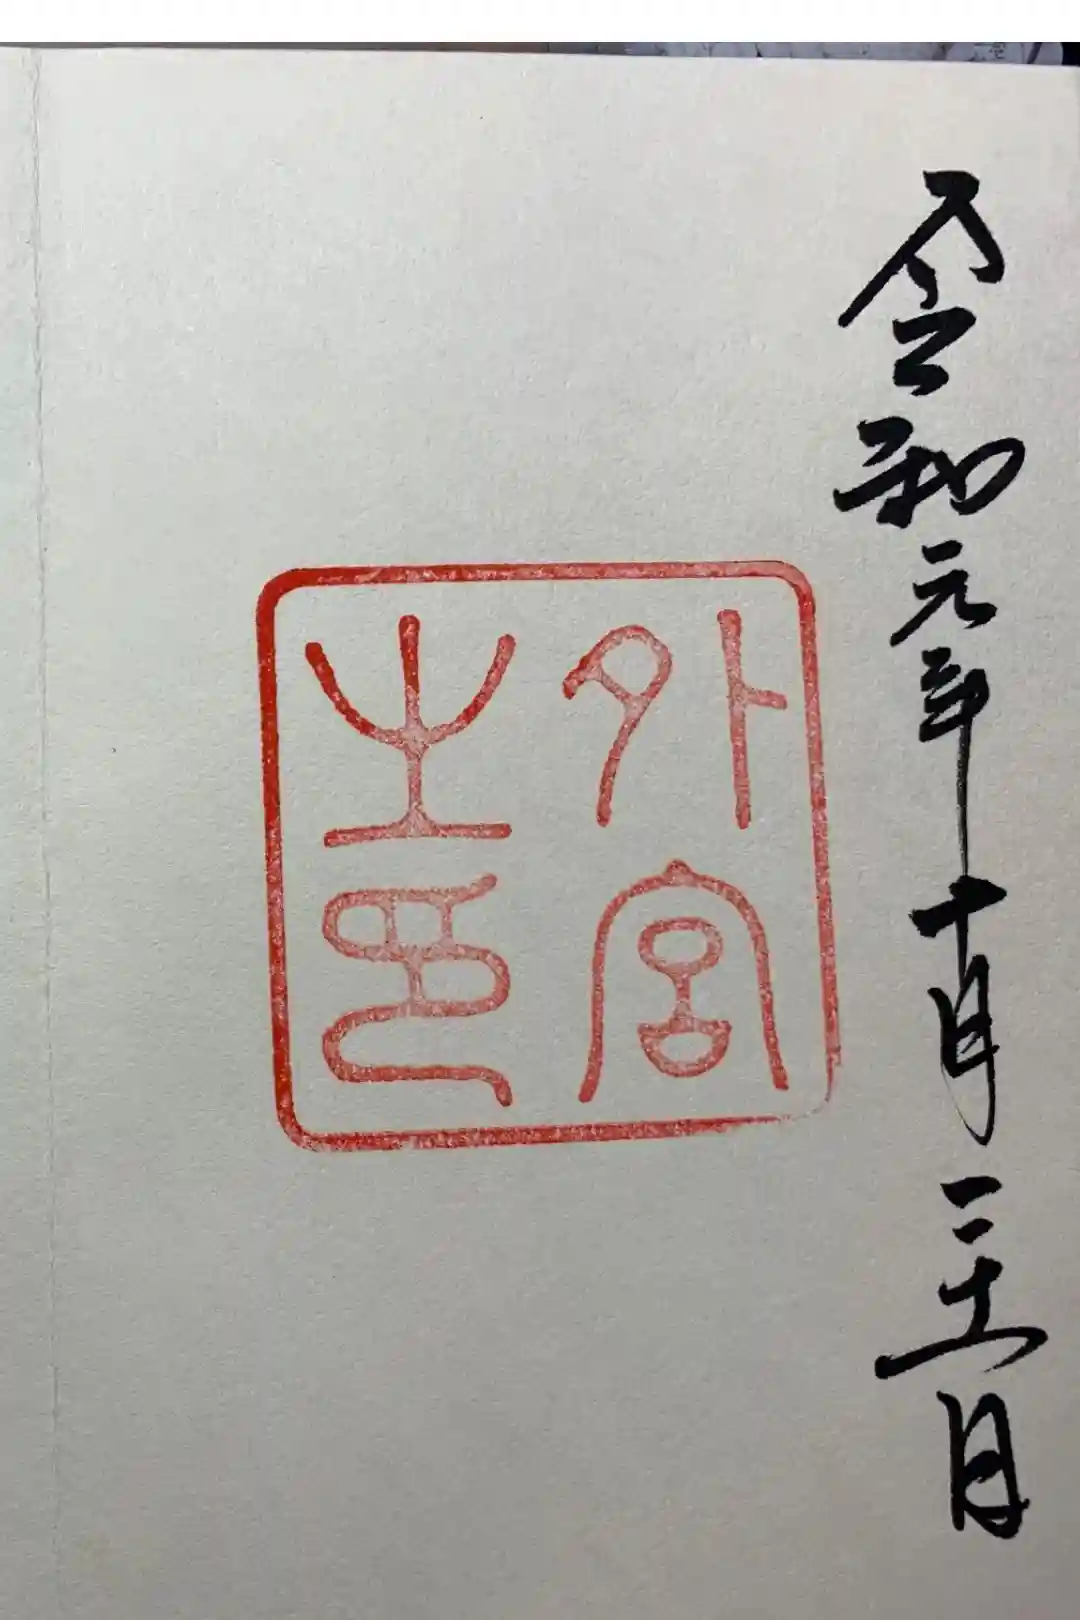 令和元年十月二十一日
外宮
之印